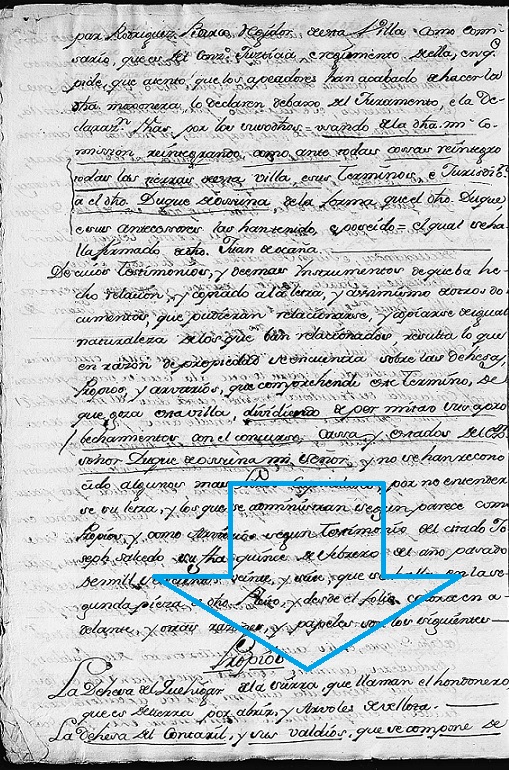 par Rodriguez Regidor de esta Villa como comi
sario, que es del Conz.º Justicia, e regimiento de ella, en q.e
pide, que atento, que los apeadores han acabado de hacer la
dha mojonera, lo declaren debaxo del Juramento, e la De
claraz.n fhas por los susodhos = usando de la dha mi Co
mission reintegrando, como ante todas cosas reintegro
todas las tierras de esta villa e sus terminos, e Jurisdi
a el dho Duque de Ossuna, de la forma, que el dho Duque
e sus antecesores las han tenido, e poseido = el qual se ha
lla firmado de dho Juan de Ocaña.
De cuios testimonios, y demas Instrumentos de que ba he
cho relacion, y copiado a la letra, y assimismo de otros do
cumentos, que pudieran relacionarse, y copiarse de igual
naturaleza de los que ban relacionados, resulta lo que
en razon de propiedad se encuentra sobre las dehesas,
Propios, y arvitrios, que comprehende este Termino, de
que goza esta villa, dividiendo de por mitad sus apro
bechamientos con el concurso, Cassa, y estados del
señor Duque de Ossuna mi Señor, y no se han recono
cido algunos mas por no entender
se su letra, y los que se administran segun parece como
Propios, y como Arvitrios segun Testimonio del citado Jo
seph Salcedo su fha quince de febrero del año pasado
de mill veinte, y seis, que se halla en la se
gunda pieza de dho y desde el folio catorze en a
delante, y otras razones, y papeles son los siguientes
Propios
La Dehesa del Quehigar de la sierra, que llaman el hondonero,
que es de tierra por abrir, y Arvoles de vellota.
La Dehesa del Contaril, y sus valdios, que se compone de